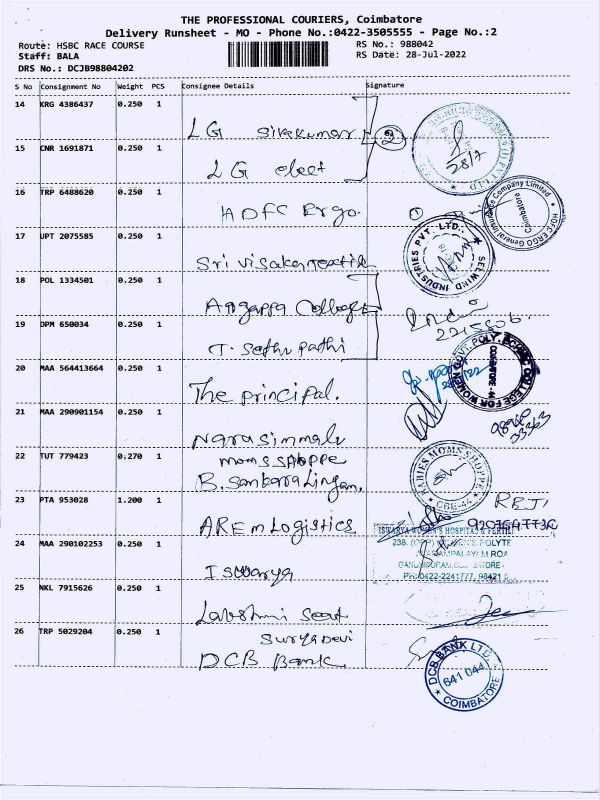 THE PROFESSIONAL COURIERS, Coimbatore
Delivery Runsheet - MO - Phone No.:0422-3505555 - Page No.:2
Route: HSBC RACE COURSE
RS No.: 988042
Staff: BALA
RS Date: 28-Jul-2022
DRS No.: DCJB98804202
S No Consignment No Weight PCS Consignee Details Signature
14 KRG 4386437 0.250 1
LG Sivakumar
2
28/7
15 CNR 1691871 0.250 1
LG elect
16 TRP 6488620 0.250 1
HDFC Ergo.
1
HDFC ERGO General Insurance Company Limited
Coimbatore
17 UPT 2075585 0.250 1
Sri Visaka Textile
SELWIND INDUSTRIES PVT. LTD.
18 POL 1334501 0.250 1
Angappa College
19 DPM 650034 0.250 1
T. Sethu Pathi
20 MAA 564413664 0.250 1
The principal.
COIMBATORE - 44
21 MAA 290901154 0.250 1
Narasimmalu
22 TUT 779423 0.270 1
moms shoppe
B. Sankaralingam.
BABIES MOMS SHOPPE
CBE-44
23 PTA 953028 1.200 1
AREM Logistics
REJI
ISWARYA WOMEN'S HOSPITAL & FERTIL
24 MAA 290102253 0.250 1
Iswarya
PH: 0422-2241777, 98421
25 NKL 7915626 0.250 1
Lakshmi Seat
26 TRP 5029204 0.250 1
Suryadevi
DCB Bank
DCB BANK LTD.
641 044
COIMBATORE